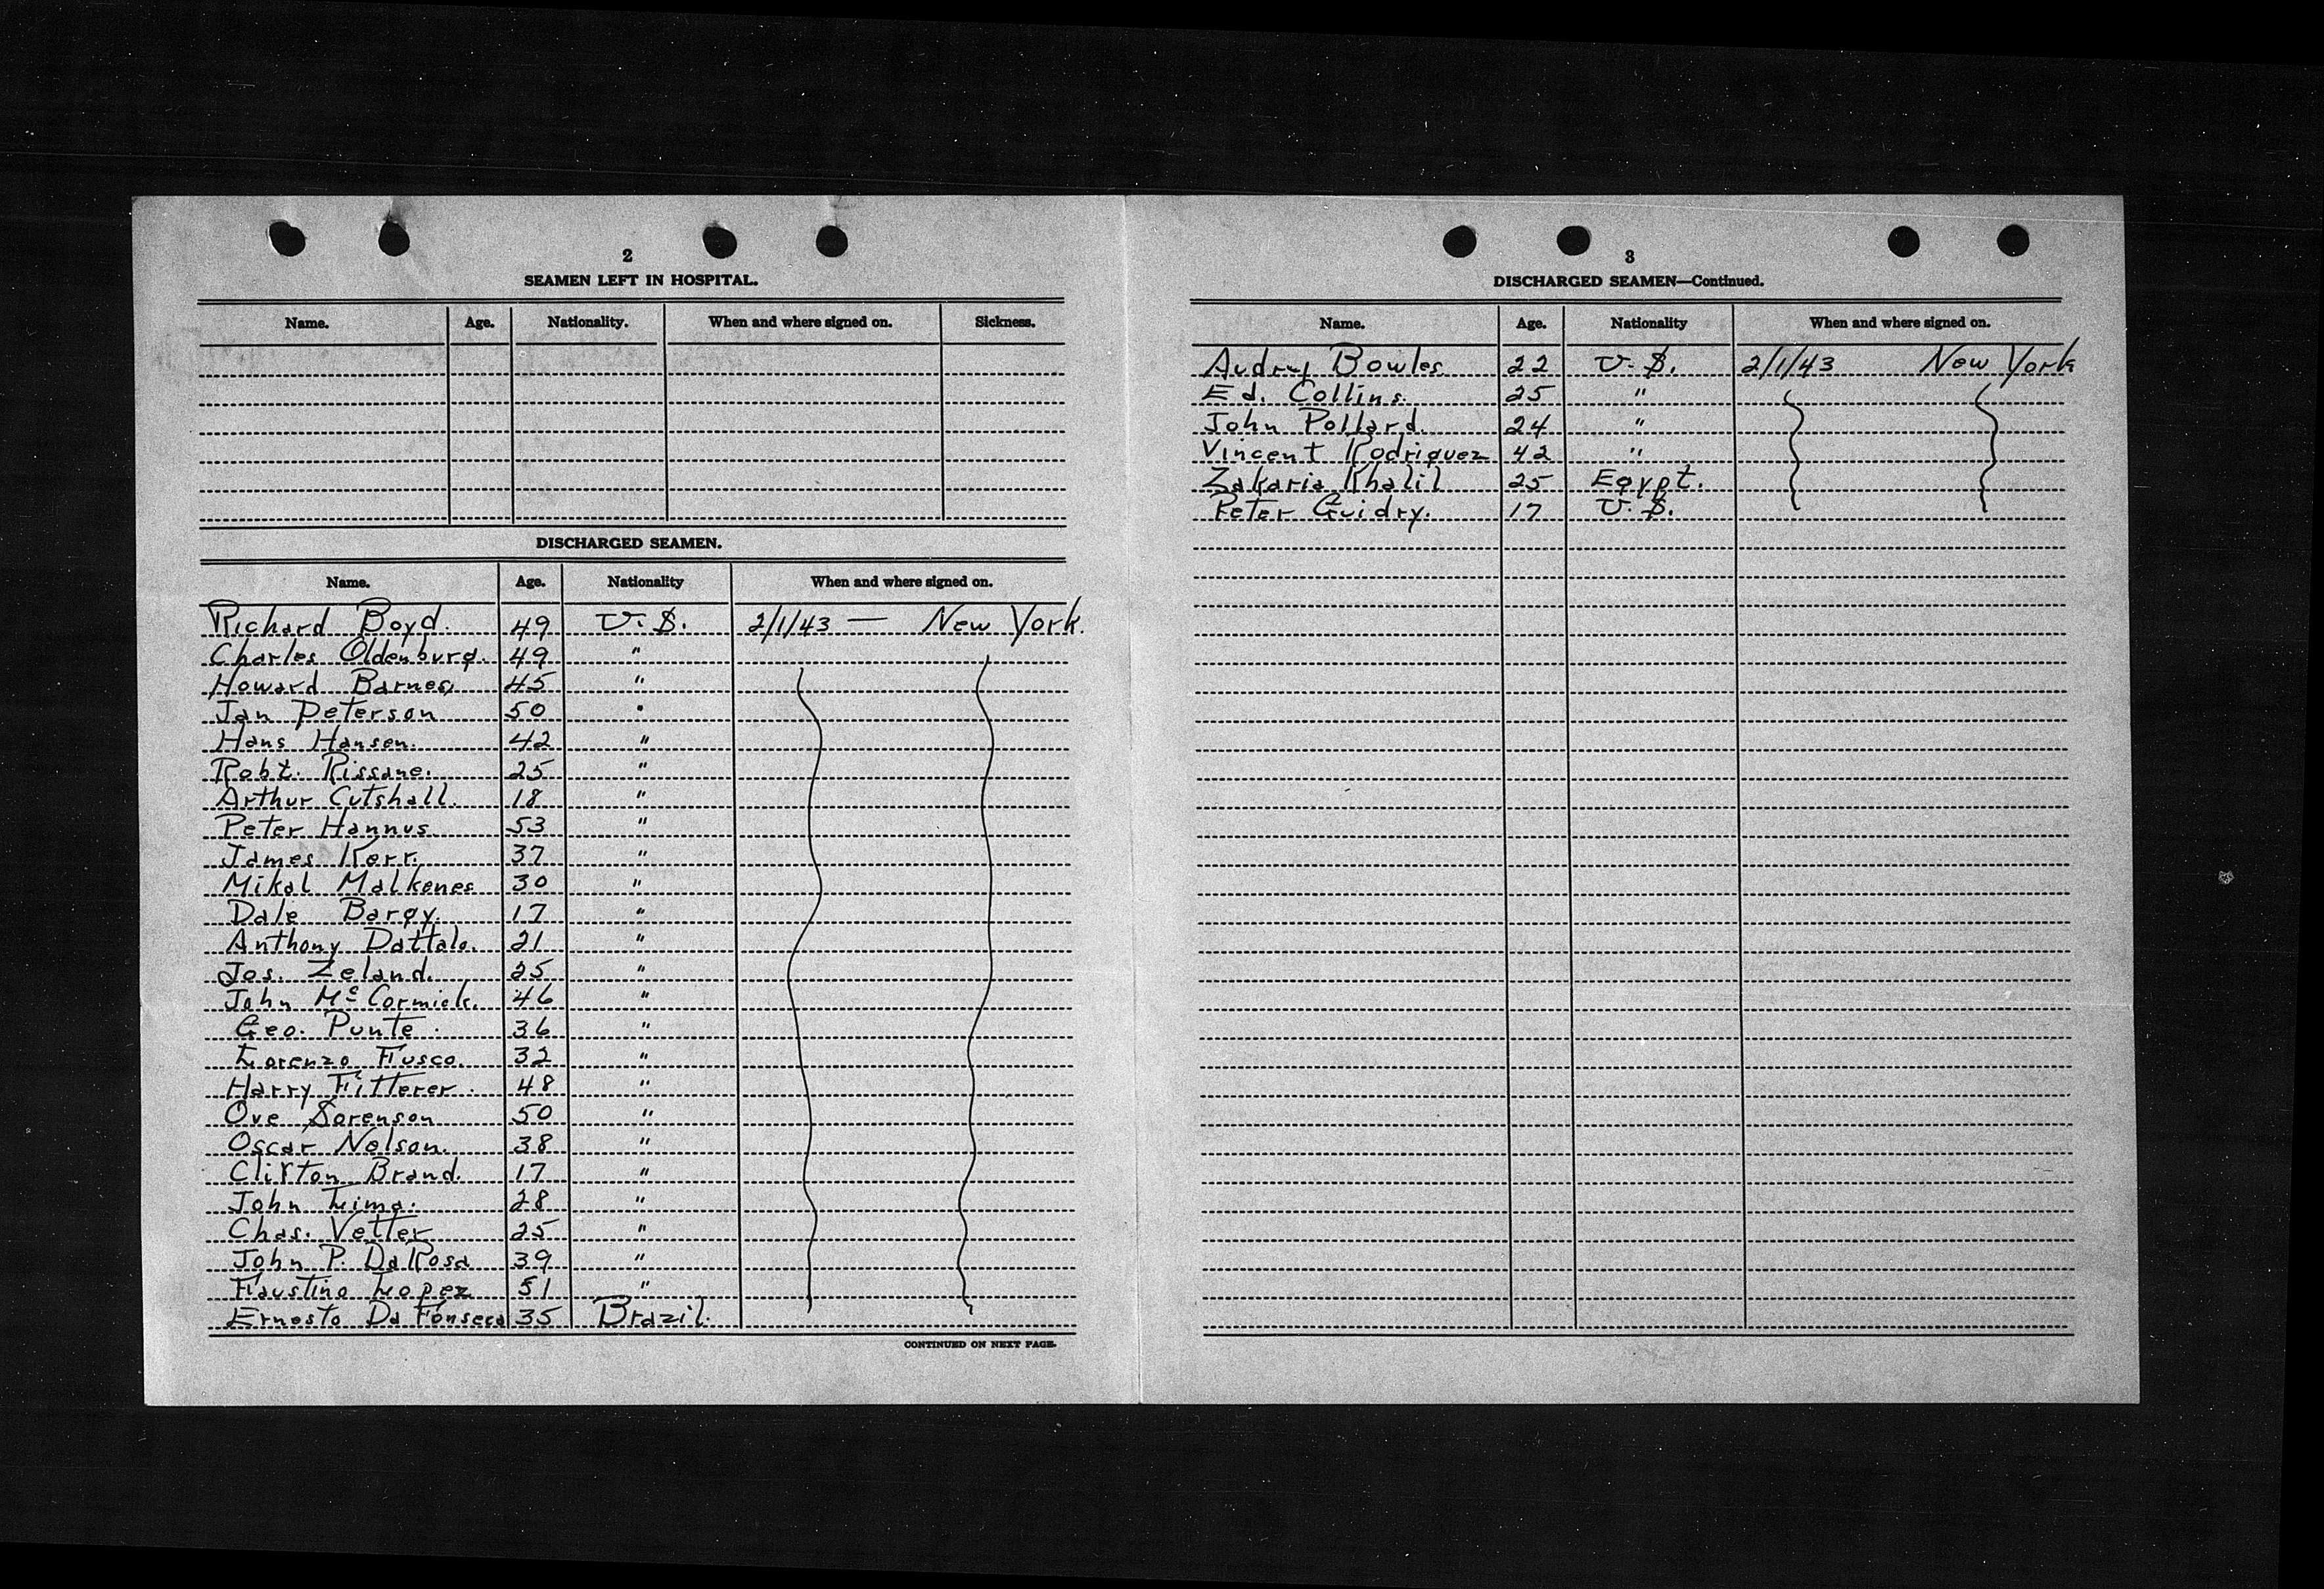 2
SEAMEN LEFT IN HOSPITAL.
Name. Age. Nationality. When and where signed on. Sickness.
DISCHARGED SEAMEN.
Name. Age. Nationality When and where signed on.
Richard Boyd. 49 U.S. 2/1/43 — New York.
Charles Oldenburg. 49 "
Howard Barnes, 45 "
Jan Peterson 50 "
Hans Hansen. 42 "
Robt. Rissane. 25 "
Arthur Cutshall. 18 "
Peter Hannus. 53 "
James Kerr. 37 "
Mikal Malkenes 30 "
Dale Bargy. 17 "
Anthony Dattalo. 21 "
Jos. Zeland. 25 "
John McCormick. 46 "
Geo. Punte. 36 "
Lorenzo Fusco. 32 "
Harry Fitterer. 48 "
Ove Sorenson 50 "
Oscar Nelson. 38 "
Clifton Brand. 17 "
John Lima. 28 "
Chas. Vetter 25 "
John P. DaRosa 39 "
Faustino Lopez 51 "
Ernesto Da Fonseca 35 Brazil.
CONTINUED ON NEXT PAGE.
3
DISCHARGED SEAMEN—Continued.
Name. Age. Nationality When and where signed on.
Audry Bowles 22 U.S. 2/1/43 New York
Ed. Collins. 25 "
John Pollard. 24 "
Vincent Rodriguez 42 "
Zakaria Khalil 25 Egypt.
Peter Guidry. 17 U.S.